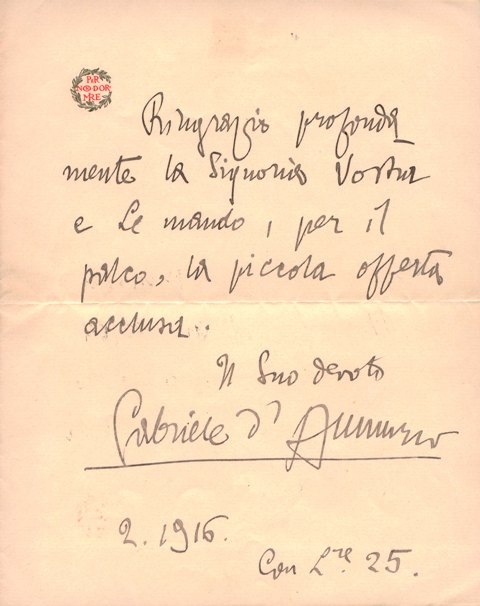 PER
NON DOR
MIRE
Ringrazio profonda
mente la Signoria Vostra
e Le mando, per il
palco, la piccola offerta
acclusa.
Il Suo devoto
Gabriele d'Annunzio
2. 1916.
Con L.re 25.